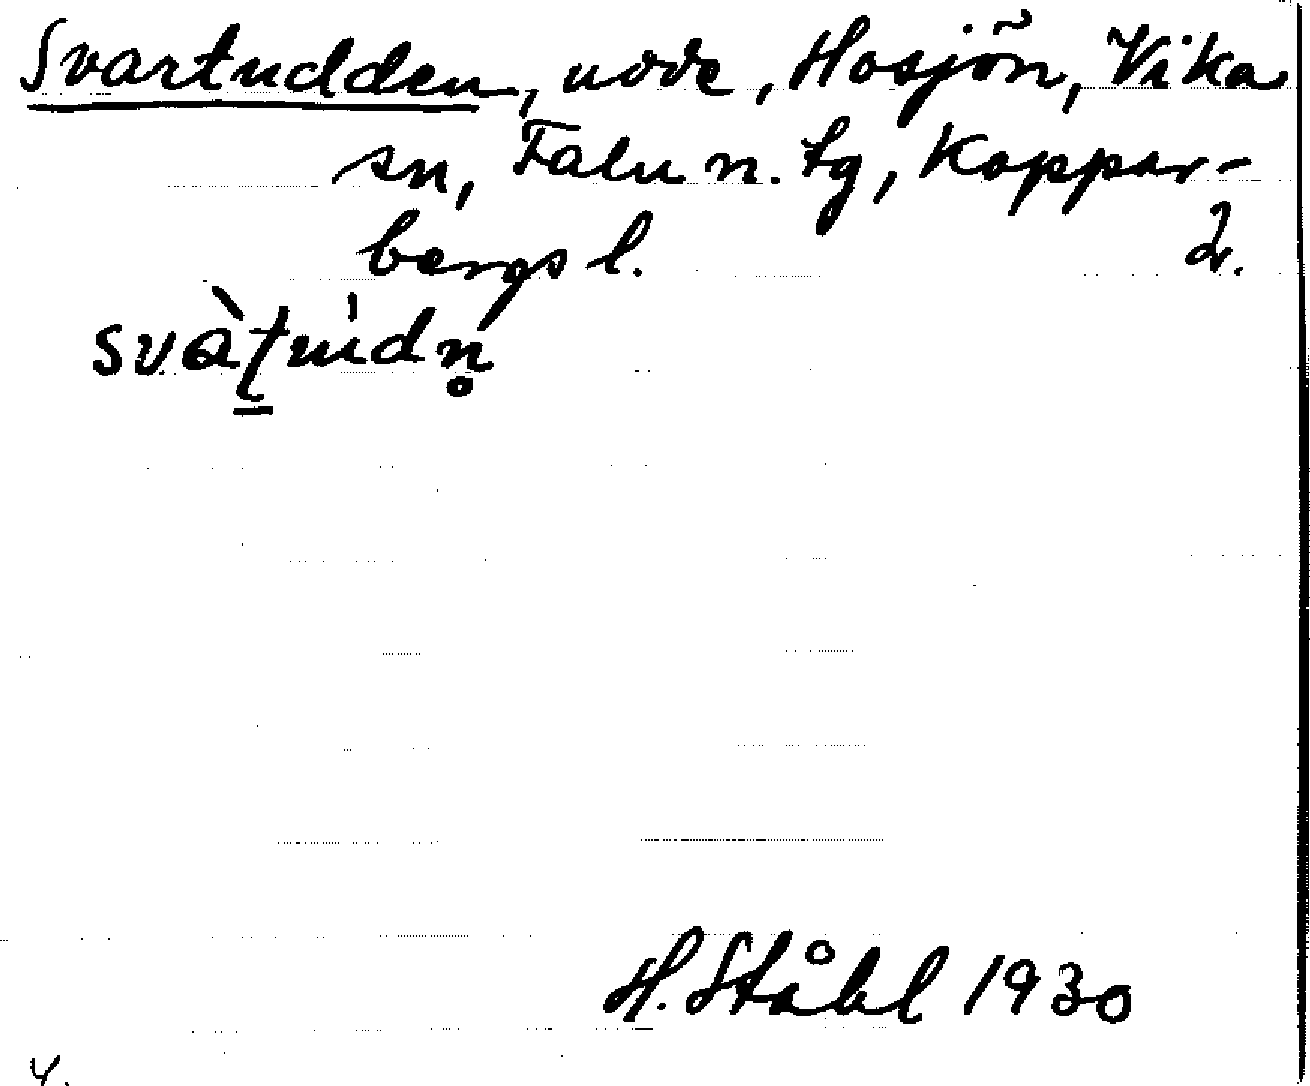 Svartudden, udde, Hosjön, Vika
sn, Falu n. tg, Koppar-
bergs l. 2.
svàt̠údn̥
H. Ståhl 1930
4.